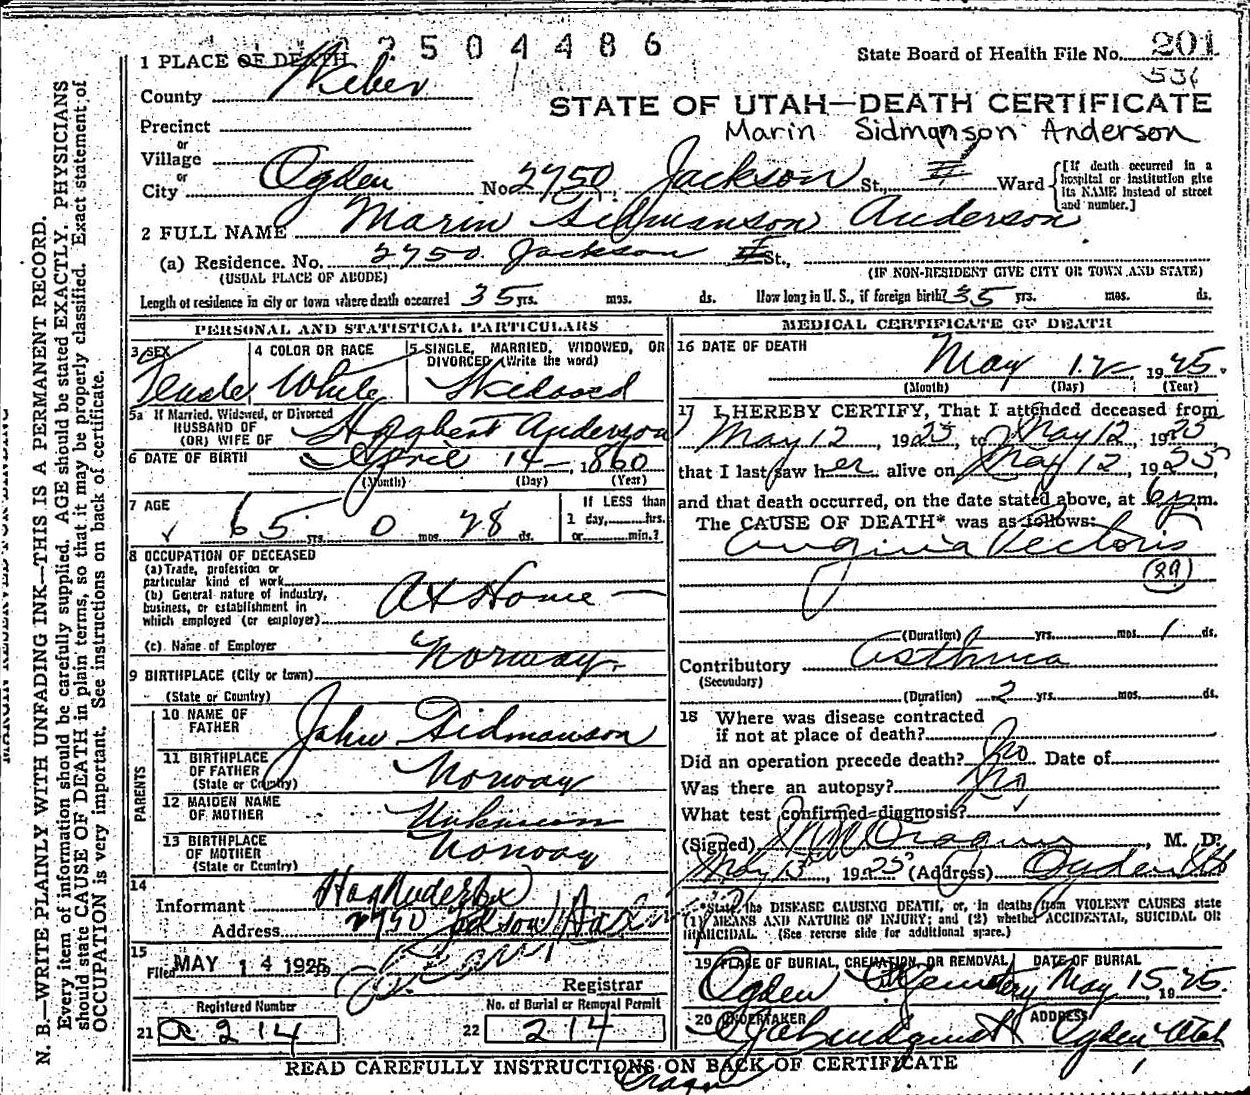 2504486
1 PLACE OF DEATH
State Board of Health File No. 201
County Weber
STATE OF UTAH—DEATH CERTIFICATE
Precinct
Marin Sidmanson Anderson
or
Village
or
City Ogden No. 2750 Jackson St., Ward [If death occurred in a hospital or institution give its NAME instead of street and number.]
2 FULL NAME Marin Sidmanson Anderson
(a) Residence. No. 2750 Jackson St.,
(USUAL PLACE OF ABODE) (IF NON-RESIDENT GIVE CITY OR TOWN AND STATE)
Length of residence in city or town where death occurred 35 yrs. mos. ds. How long in U. S., if foreign birth? 35 yrs. mos. ds.
PERSONAL AND STATISTICAL PARTICULARS
3 SEX Female
4 COLOR OR RACE White
5 SINGLE, MARRIED, WIDOWED, OR DIVORCED (Write the word)
5a If Married, Widowed, or Divorced
HUSBAND OF
(OR) WIFE OF Anderson
6 DATE OF BIRTH April 14, 1860
(Month) (Day) (Year)
7 AGE 65 yrs. 0 mos. 28 ds.
If LESS than
1 day, hrs.
or min.?
8 OCCUPATION OF DECEASED
(a) Trade, profession or
particular kind of work
(b) General nature of industry,
business, or establishment in
which employed (or employer) At Home
(c) Name of Employer
9 BIRTHPLACE (City or town) Norway
(State or Country)
PARENTS
10 NAME OF FATHER John Sidmanson
11 BIRTHPLACE OF FATHER Norway
(State or Country)
12 MAIDEN NAME OF MOTHER Unknown
13 BIRTHPLACE OF MOTHER Norway
(State or Country)
14
Informant
Address 2750 Jackson
15
Filed MAY 14 1925
Registrar
Registered Number
21 a 214
No. of Burial or Removal Permit
22 214
MEDICAL CERTIFICATE OF DEATH
16 DATE OF DEATH May 12 1925.
(Month) (Day) (Year)
17 I HEREBY CERTIFY, That I attended deceased from
May 12, 1925, to May 12, 1925
that I last saw her alive on May 12, 1925
and that death occurred, on the date stated above, at 6 p m.
The CAUSE OF DEATH* was as follows:
Angina Pectoris
(89)
(Duration) yrs. mos. 1 ds.
Contributory Asthma
(Secondary)
(Duration) 2 yrs. mos. ds.
18 Where was disease contracted
if not at place of death?
Did an operation precede death? No Date of
Was there an autopsy? No
What test confirmed diagnosis?
(Signed) , M. D.
May 13, 1925 (Address) Ogden
*State the DISEASE CAUSING DEATH, or, in deaths from VIOLENT CAUSES state
(1) MEANS AND NATURE OF INJURY; and (2) whether ACCIDENTAL, SUICIDAL OR
HOMICIDAL. (See reverse side for additional space.)
19 PLACE OF BURIAL, CREMATION, OR REMOVAL DATE OF BURIAL
Ogden Cemetery May 15, 1925.
20 UNDERTAKER ADDRESS
Ogden Utah
READ CAREFULLY INSTRUCTIONS ON BACK OF CERTIFICATE
N. B.—WRITE PLAINLY WITH UNFADING INK—THIS IS A PERMANENT RECORD.
Every item of information should be carefully supplied. AGE should be stated EXACTLY. PHYSICIANS
should state CAUSE OF DEATH in plain terms, so that it may be properly classified. Exact statement of
OCCUPATION is very important. See instructions on back of certificate.